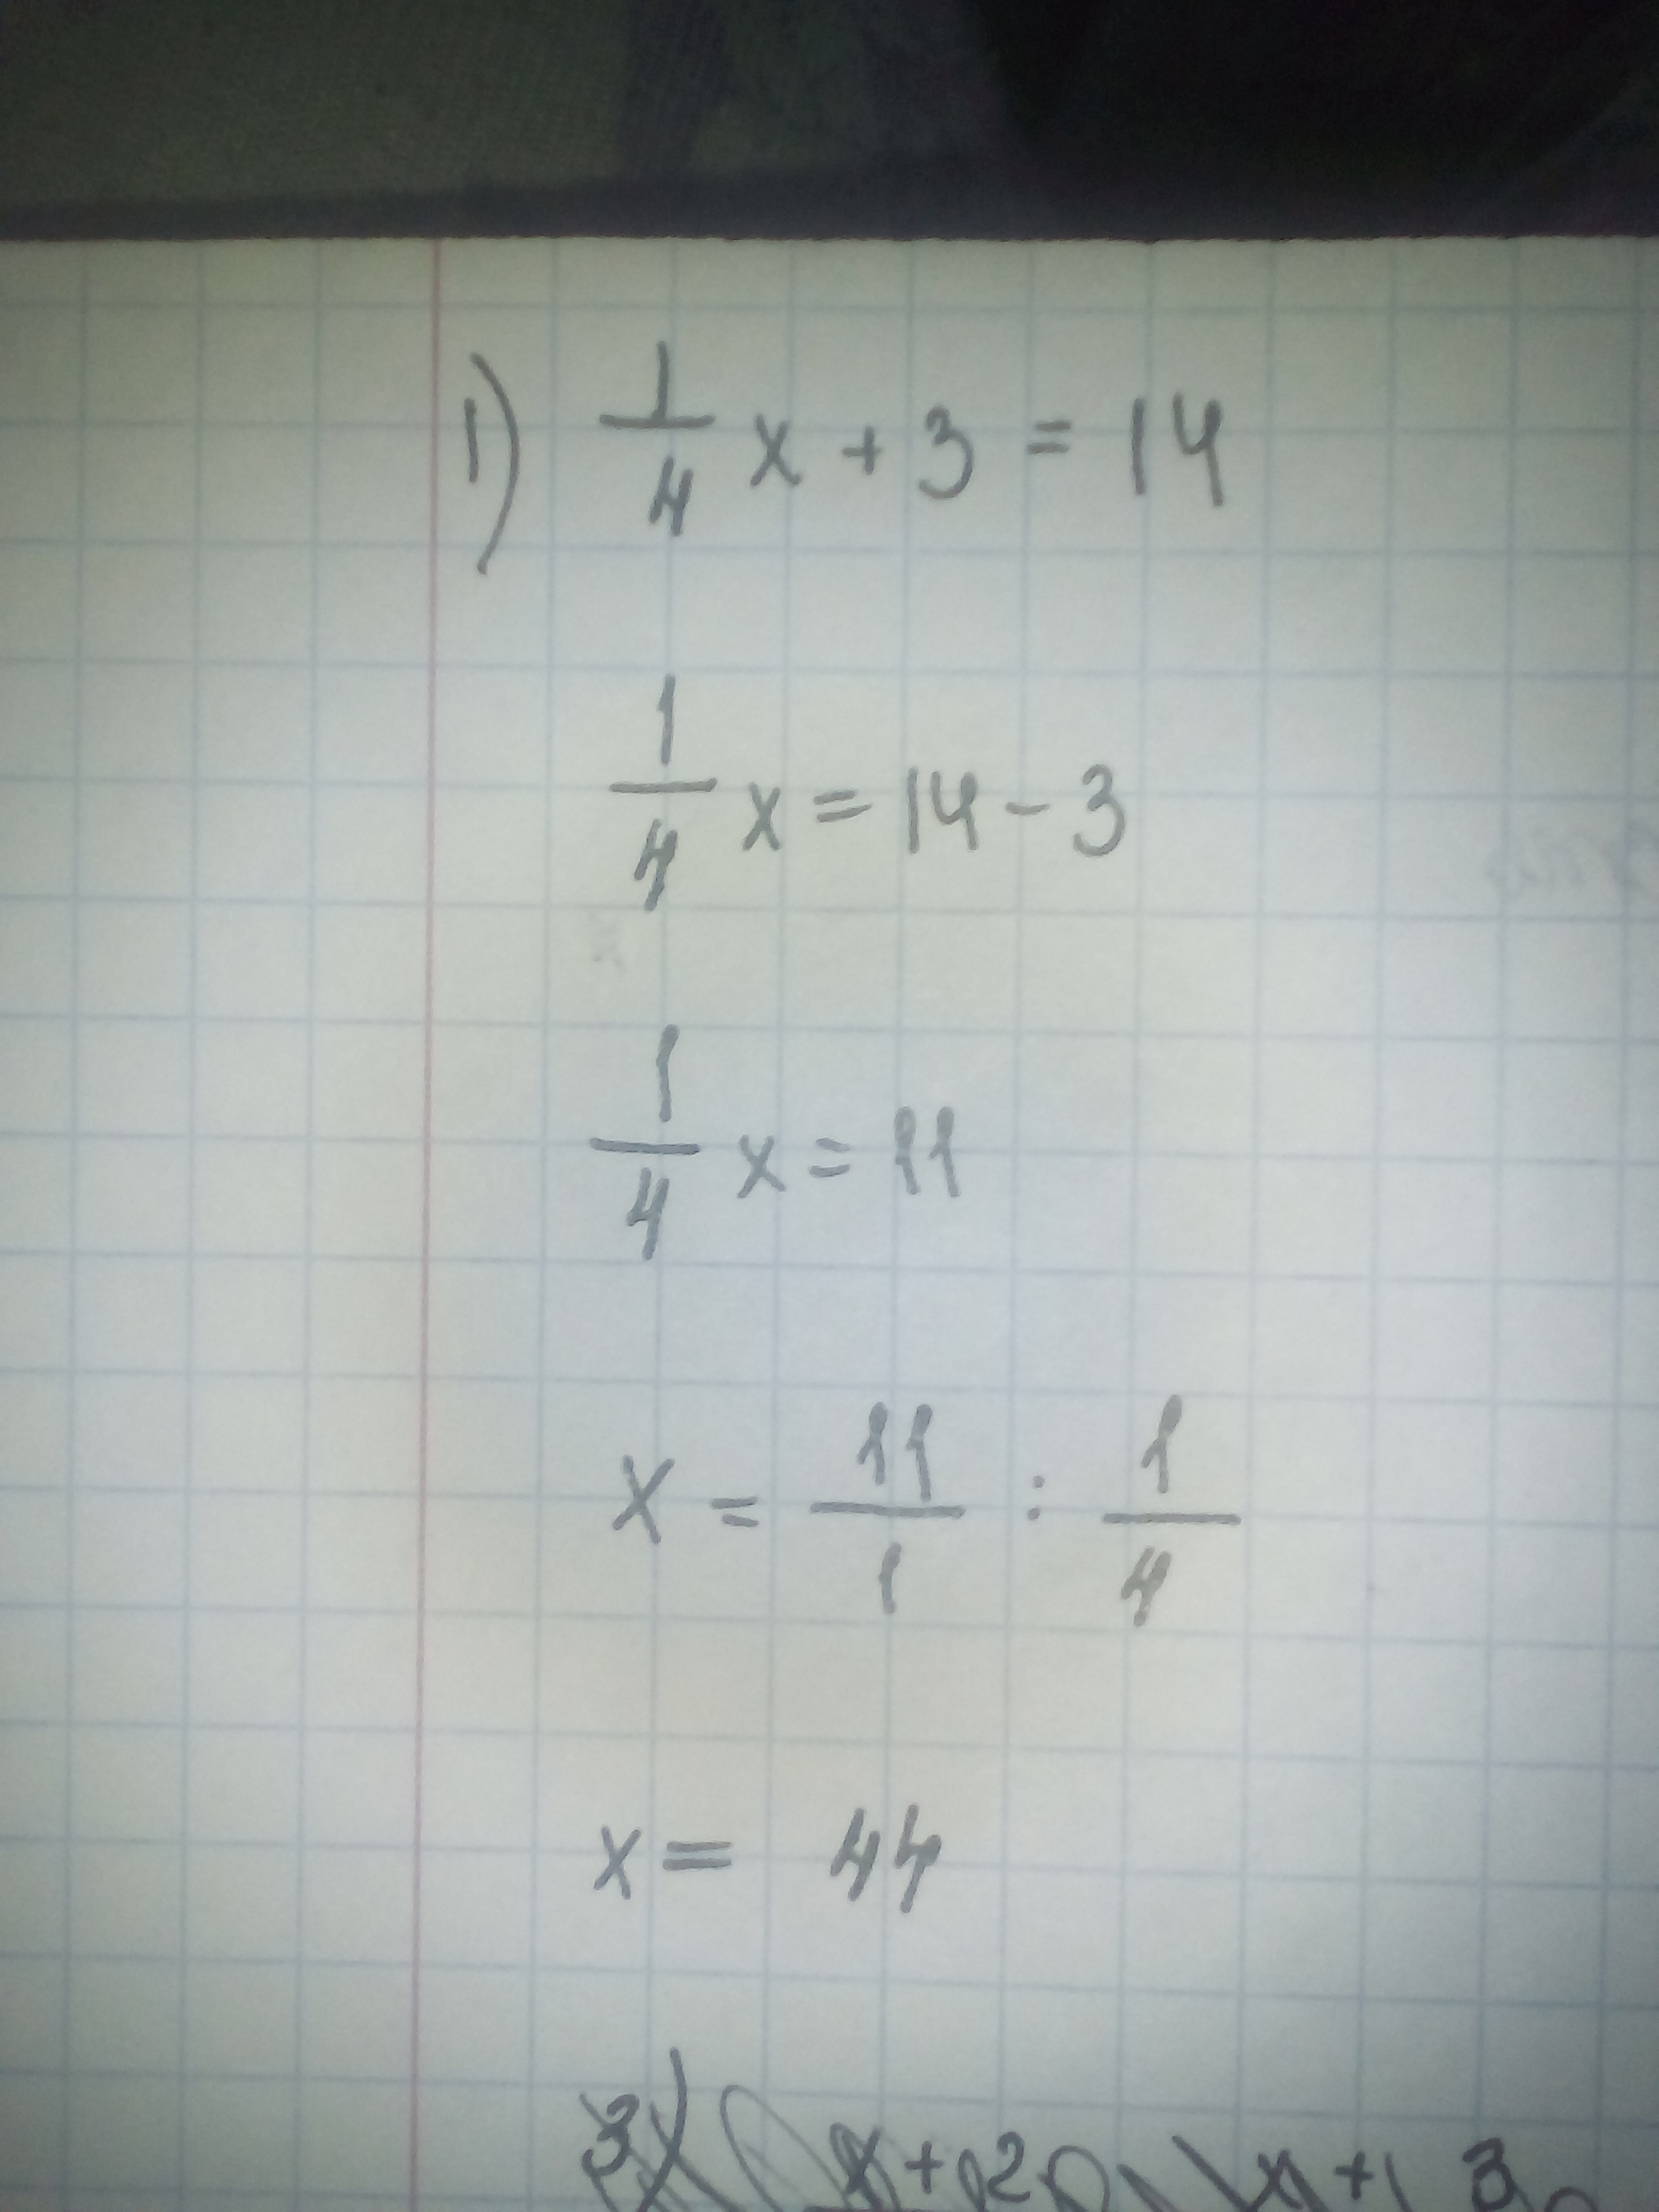 1) 1/4 x + 3 = 14
1/4 x = 14 - 3
1/4 x = 11
x = 11/1 : 1/4
x = 44
3)